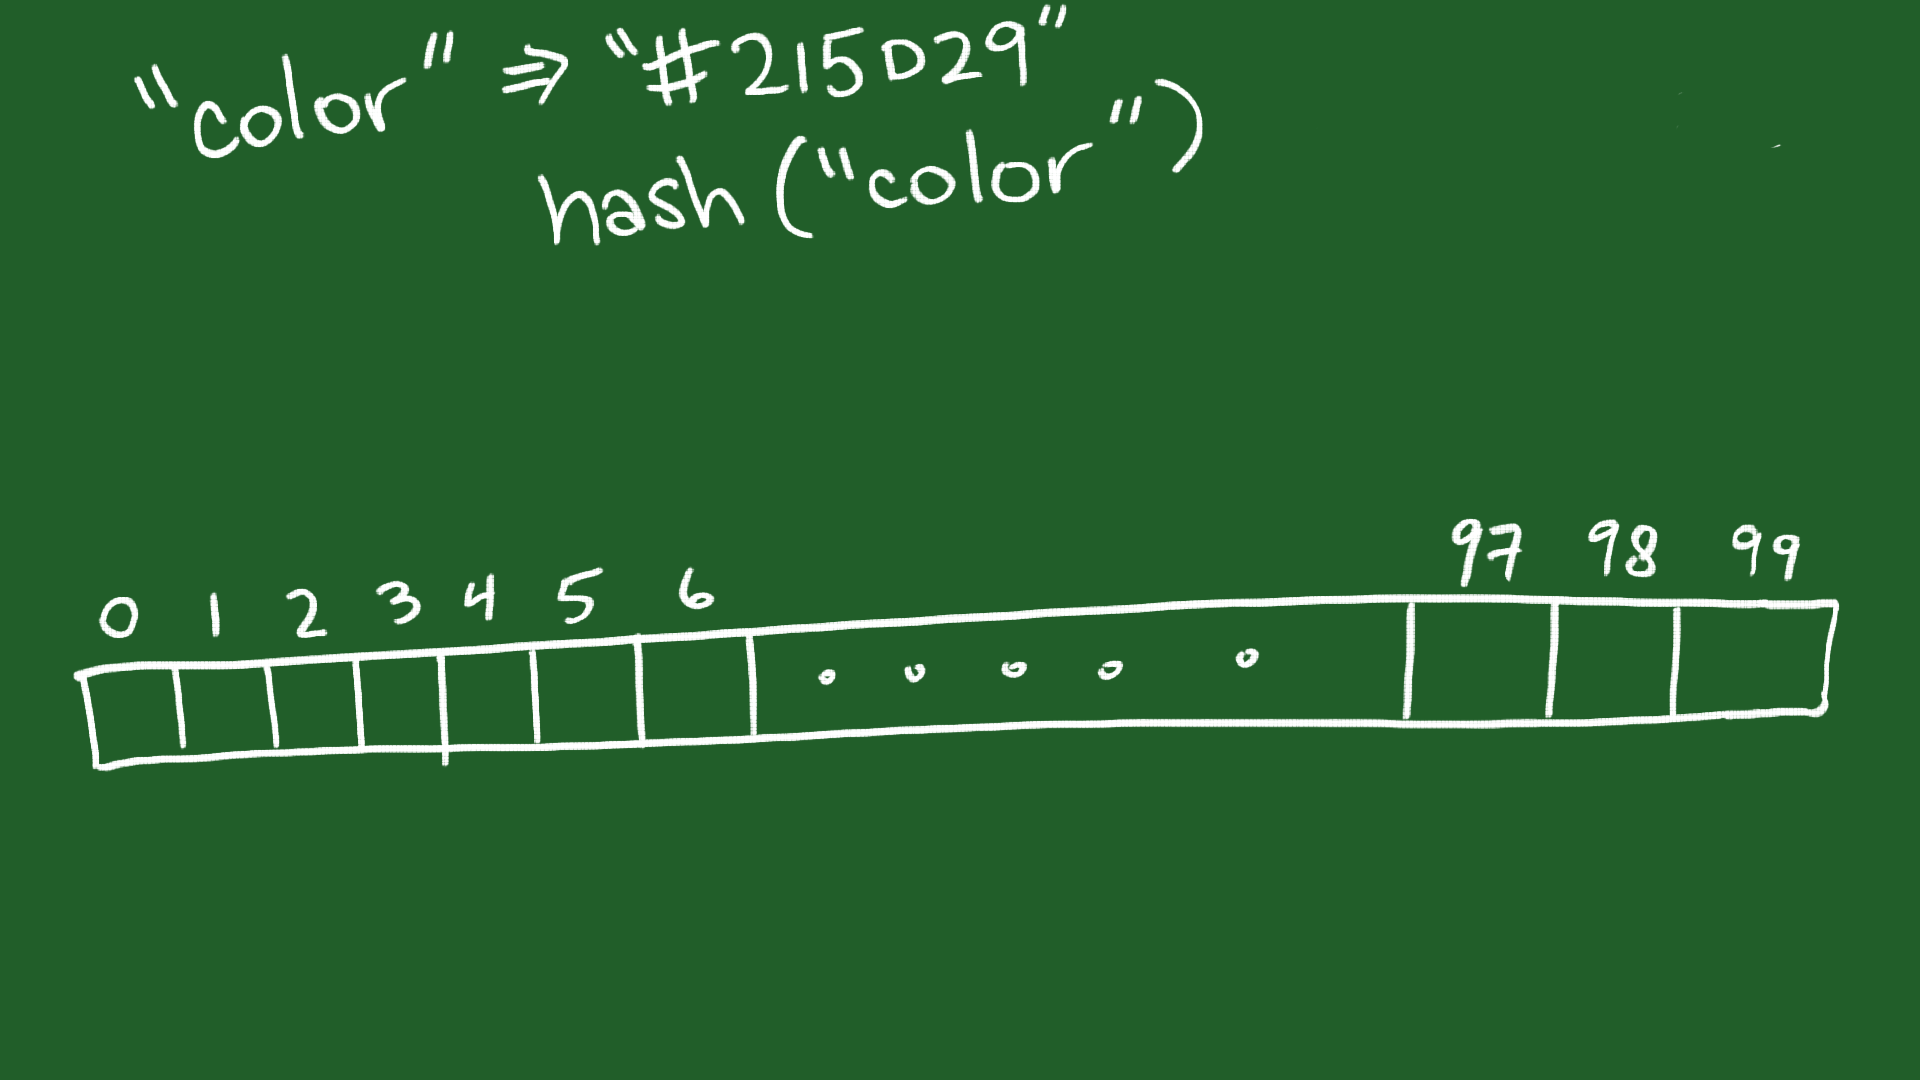 "color" ⇒ "#215D29"
hash("color")
0 1 2 3 4 5 6 97 98 99